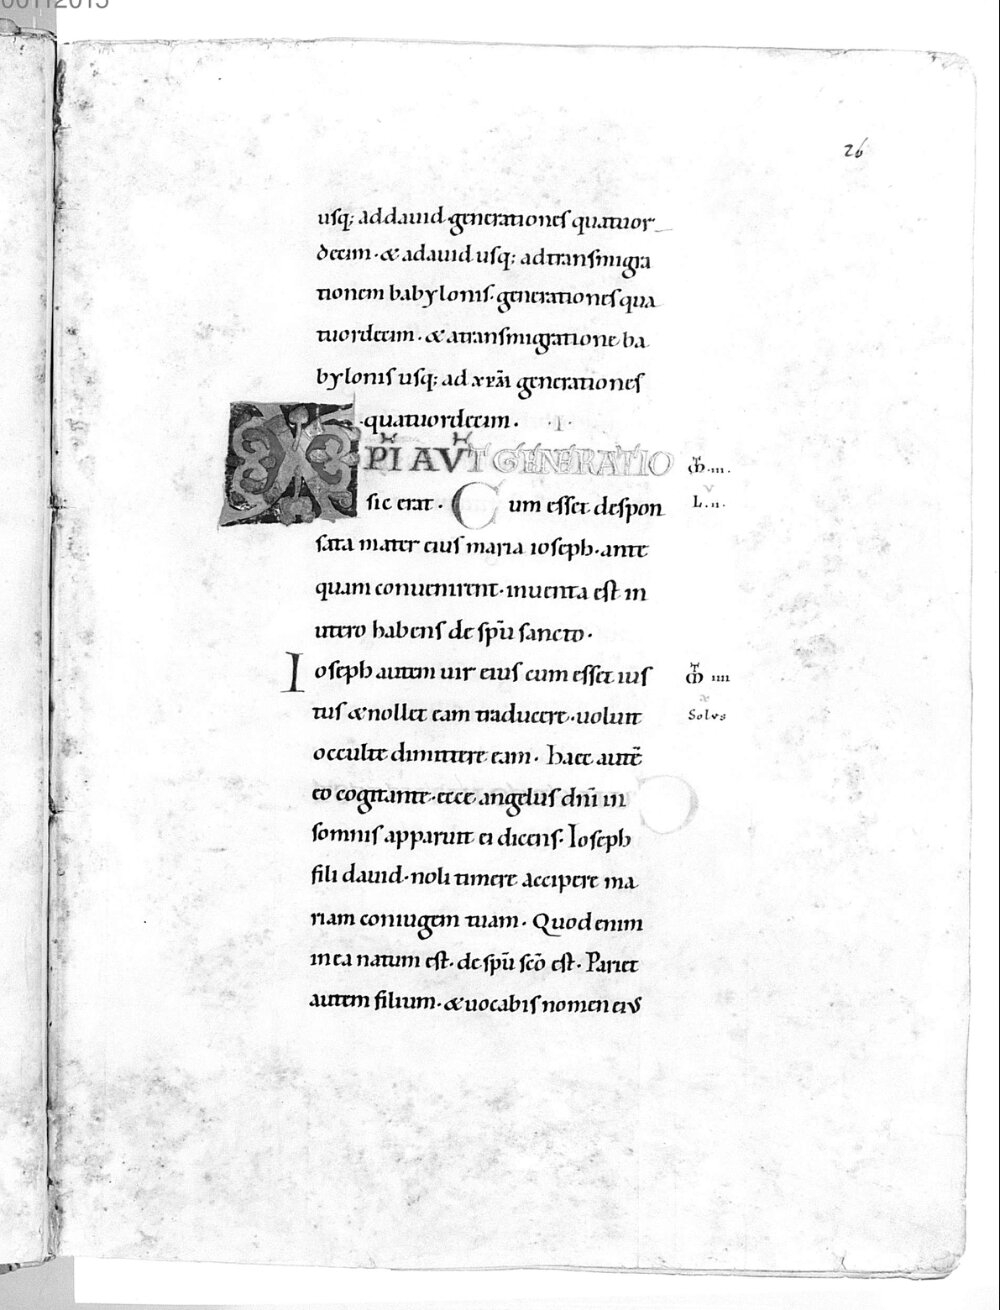 26
uſq; addauid generationeſ quatuor
decim · & adauid uſq; adtranſmigra
tionem babyloniſ · generationeſ qua
tuordecim · & atranſmigratione ba
byloniſ uſq; ad xp̄m generationeſ
· quatuordecim · · I ·
XP̄I AVT̄ GENERATIO
ſic erat · Cum eſſet deſpon
ſata mater eiuſ maria ioſeph · ante
quam conuenirent · inuenta eſt in
utero habens de ſp̄u ſancto ·
Ioſeph autem uir eiuſ cum eſſet iuſ
tuſ & nollet eam traducere · uoluit
occulte dimittere eam · haec autē
eo cogitante · ecce angelus dn̄i in
ſomniſ apparuit ei dicenſ · Ioſeph
fili dauid · noli timere accipere ma
riam coniugem tuam · Quod enim
in ea natum eſt · de ſp̄u ſc̄o eſt · Pariet
autem filium · & uocabiſ nomen eiuſ
M̄ · III ·
L · II ·
M̄ IIII
Solvs